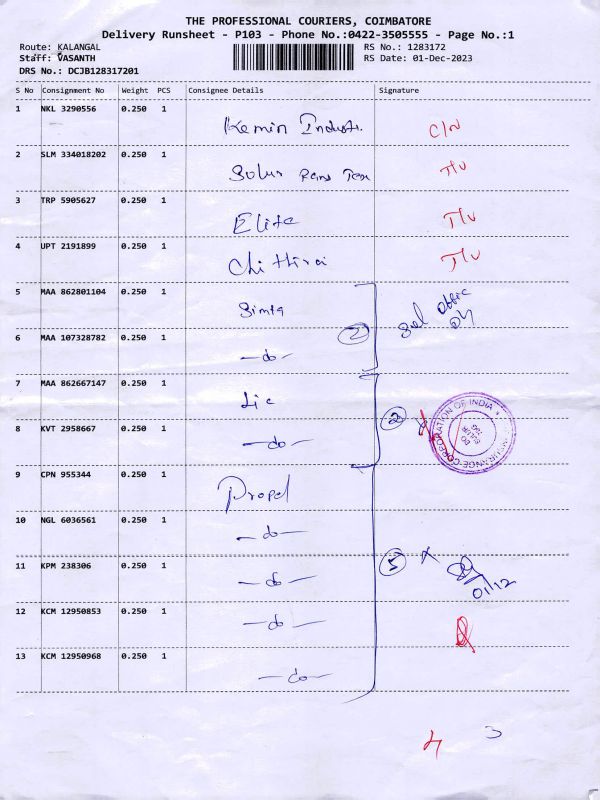 THE PROFESSIONAL COURIERS, COIMBATORE
Delivery Runsheet - P103 - Phone No.:0422-3505555 - Page No.:1
Route: KALANGAL RS No.: 1283172
Staff: VASANTH RS Date: 01-Dec-2023
DRS No.: DCJB128317201
S No Consignment No Weight PCS Consignee Details Signature
1 NKL 3290556 0.250 1
Kemin Industi. C/N
2 SLM 334018202 0.250 1
T/V
3 TRP 5905627 0.250 1
Elite T/V
4 UPT 2191899 0.250 1
Chithirai T/V
5 MAA 862801104 0.250 1
Simta
6 MAA 107328782 0.250 1 2
-do-
7 MAA 862667147 0.250 1
Lic
8 KVT 2958667 0.250 1 2 INSURANCE CORPORATION OF INDIA
-do-
9 CPN 955344 0.250 1
Propel
10 NGL 6036561 0.250 1
-do-
11 KPM 238306 0.250 1 5 x
-do- 01/12
12 KCM 12950853 0.250 1
-do-
13 KCM 12950968 0.250 1
-do-
4 3